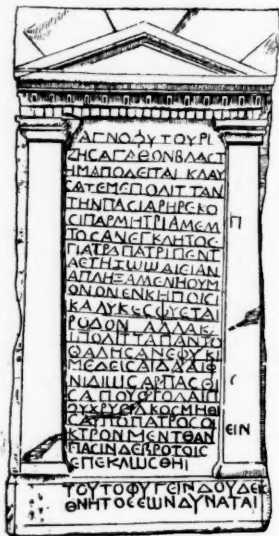 ΑΓΝΟΦΥΤΟΥΡΙ
ΖΗϹΑΓΑΘΟΝΒΛΑϹΤ
ΗΜΑΠΟΔΕΙΤΑΙΚΛΑΥ
ϹΑΤΕΜΕΠΟΛΙΤΤΑΝ
ΤΗΝΠΑϹΙΑΡΗΡΕΚΟ
ϹΙΠΑΡΜΗΤΡΙΑΜΕΜ Π
ΤΟϹΑΝΕΓΚΛΗΤΟϹΕ
ΓΙΑΤΡΑΠΑΤΡΙΠΕΝΤ
ΑΠΛΗΞΑΜΕΝΗΟΥΜ
ΟΝΟΝΕΝΚΗΠΟΙϹΙ
ΚΑΛΥΚΕϹΦΥΕΤΑΙ
ΡΟΔΟΝΑΛΛΑΚΕ
ΙΠΟΛΙΤΤΑΠΑΝΤΟ
ΘΑΛΗϹΑΝΕΦΥΚΙ
ΜΕΔΕΙϹΑΙΔΑΙΦ
ΝΙΔΙΩϹΑΡΠΑϹΘΙ Ϲ
ϹΑΥΠΟΠΑΤΡΟϹΟΙ
ΚΤΡΟΝΜΕΝΤΘΑΝ ΕΙΝ
ΠΑϹΙΝΔΕΒΡΟΤΟΙϹ
ΕΠΕΚΛΩϹΘΗΙ
ΤΟΥΤΟΦΥΓΕΙΝΔΟΥΔΕΚ
ΘΝΗΤΟϹΕΩΝΔΥΝΑΤΑΙ